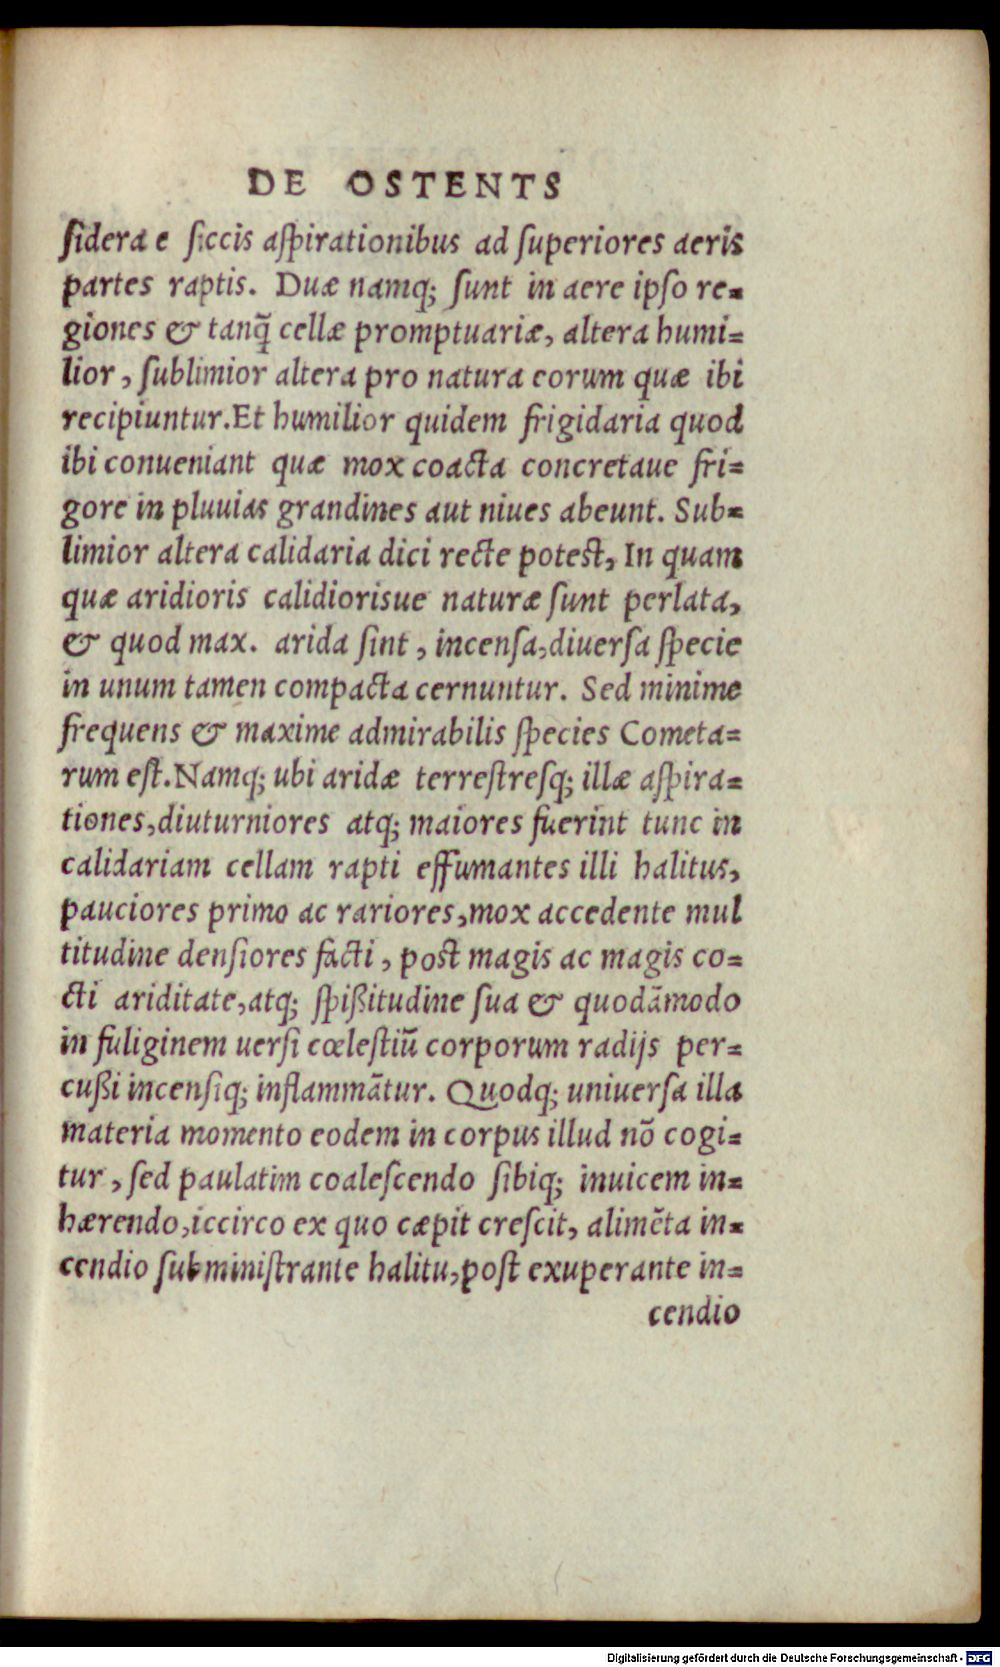 DE OSTENTS
ſidera e ſiccis aſpirationibus ad ſuperiores aeris
partes raptis. Duæ namq; ſunt in aere ipſo re-
giones & tanq̃ cellæ promptuariæ, altera humi-
lior, ſublimior altera pro natura eorum quæ ibi
recipiuntur. Et humilior quidem frigidaria quod
ibi conueniant quæ mox coacta concretaue fri-
gore in pluuias grandines aut niues abeunt. Sub-
limior altera calidaria dici recte poteſt, In quam
quæ aridioris calidiorisue naturæ ſunt perlata,
& quod max. arida ſint, incenſa, diuerſa ſpecie
in unum tamen compacta cernuntur. Sed minime
frequens & maxime admirabilis ſpecies Cometa-
rum eſt. Namq; ubi aridæ terreſtresq; illæ aſpira-
tiones, diuturniores atq; maiores fuerint tunc in
calidariam cellam rapti effumantes illi halitus,
pauciores primo ac rariores, mox accedente mul
titudine denſiores facti, poſt magis ac magis co-
cti ariditate, atq; ſpißitudine ſua & quodāmodo
in fuliginem uerſi cœleſtiũ corporum radijs per-
cußi incenſiq; inflammātur. Quodq; uniuerſa illa
materia momento eodem in corpus illud nō cogi-
tur, ſed paulatim coaleſcendo ſibiq; inuicem in-
hærendo, iccirco ex quo cæpit creſcit, alimēta in-
cendio ſubminiſtrante halitu, poſt exuperante in-
cendio
Digitalisierung gefördert durch die Deutsche Forschungsgemeinschaft - DFG